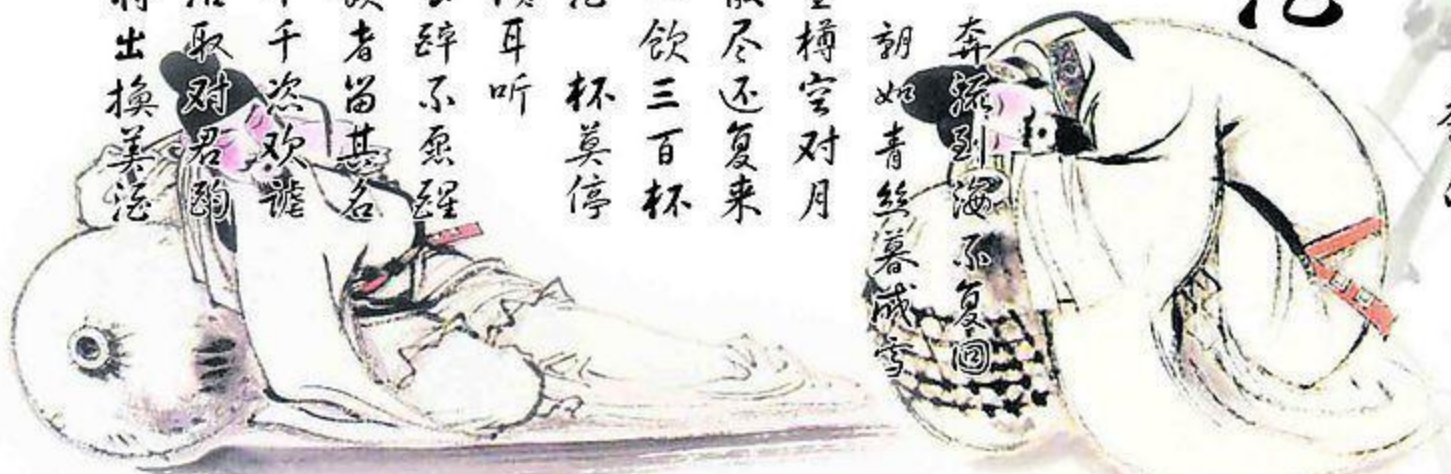 奔流到海不复回
朝如青絲暮成雪
樽空对月
尽还复来
飲三百杯
杯莫停
耳听
醉不愿醒
者留其名
千恣欢谑
取对君酌
出換美酒